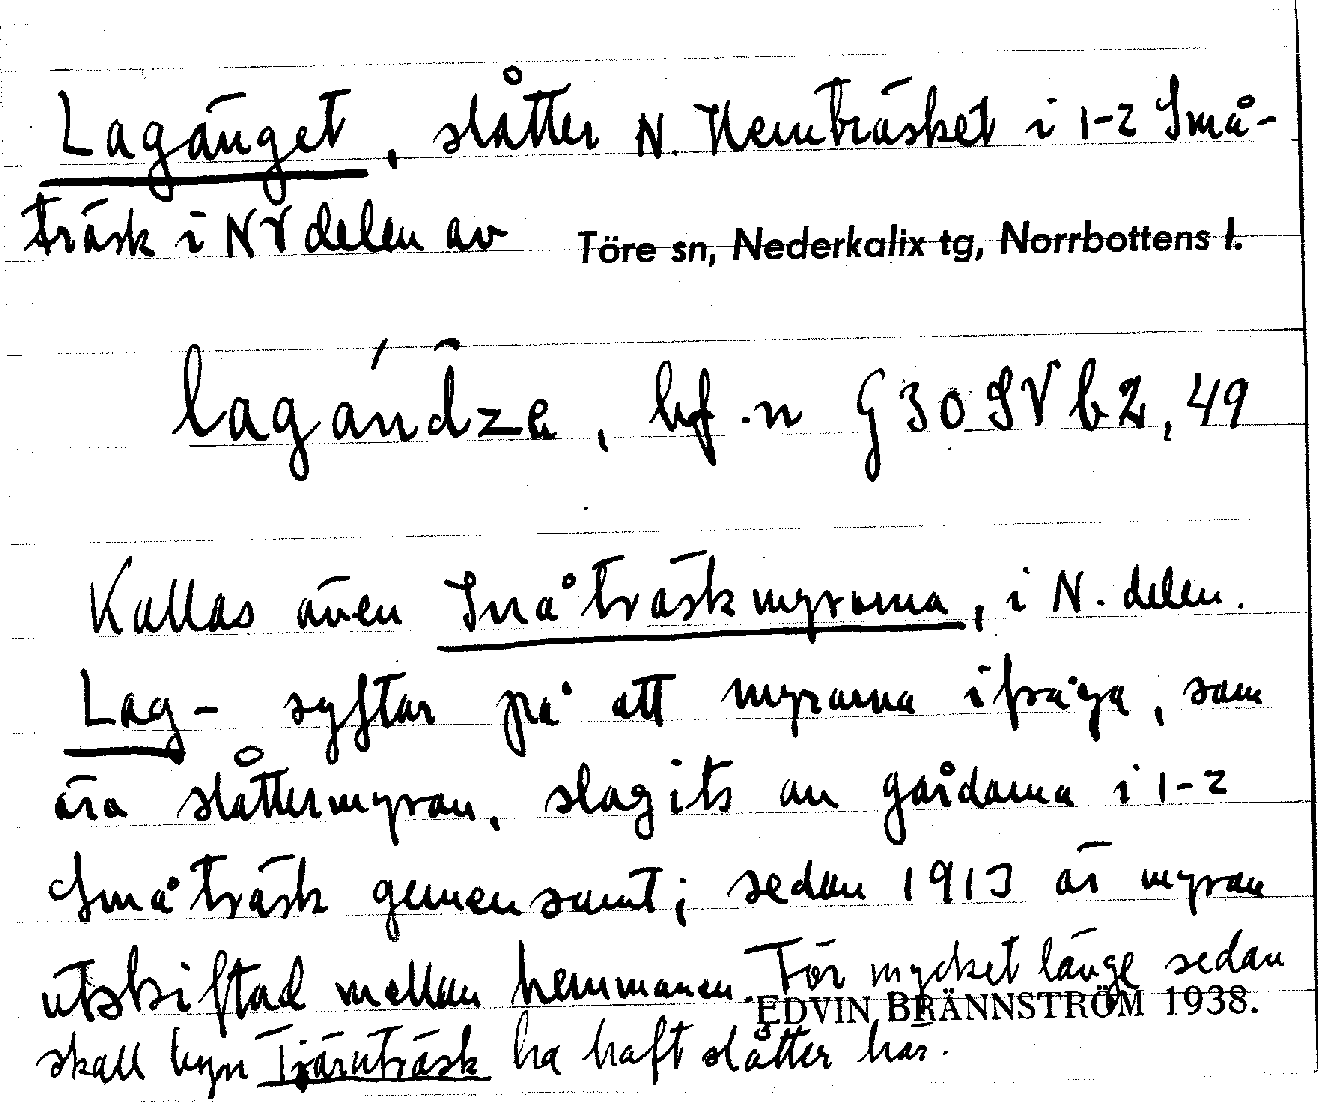 Lagänget, slåtter N. Hemträsket i 1-2 Små-
träsk i NV delen av Töre sn, Nederkalix tg, Norrbottens l.
lagándze, bf. n G 30 SV b2, 49
Kallas även Småträskmyrarna, i N. delen.
Lag- syftar på att myrarna ifråga, som
äro slåttermyrar, slagits av gårdarna i 1-2
Småträsk gemensamt; sedan 1913 är myran
utskiftad mellan hemmanen. För mycket länge sedan
EDVIN BRÄNNSTRÖM 1938.
skall byn Tjärnträsk ha haft slåtter här.